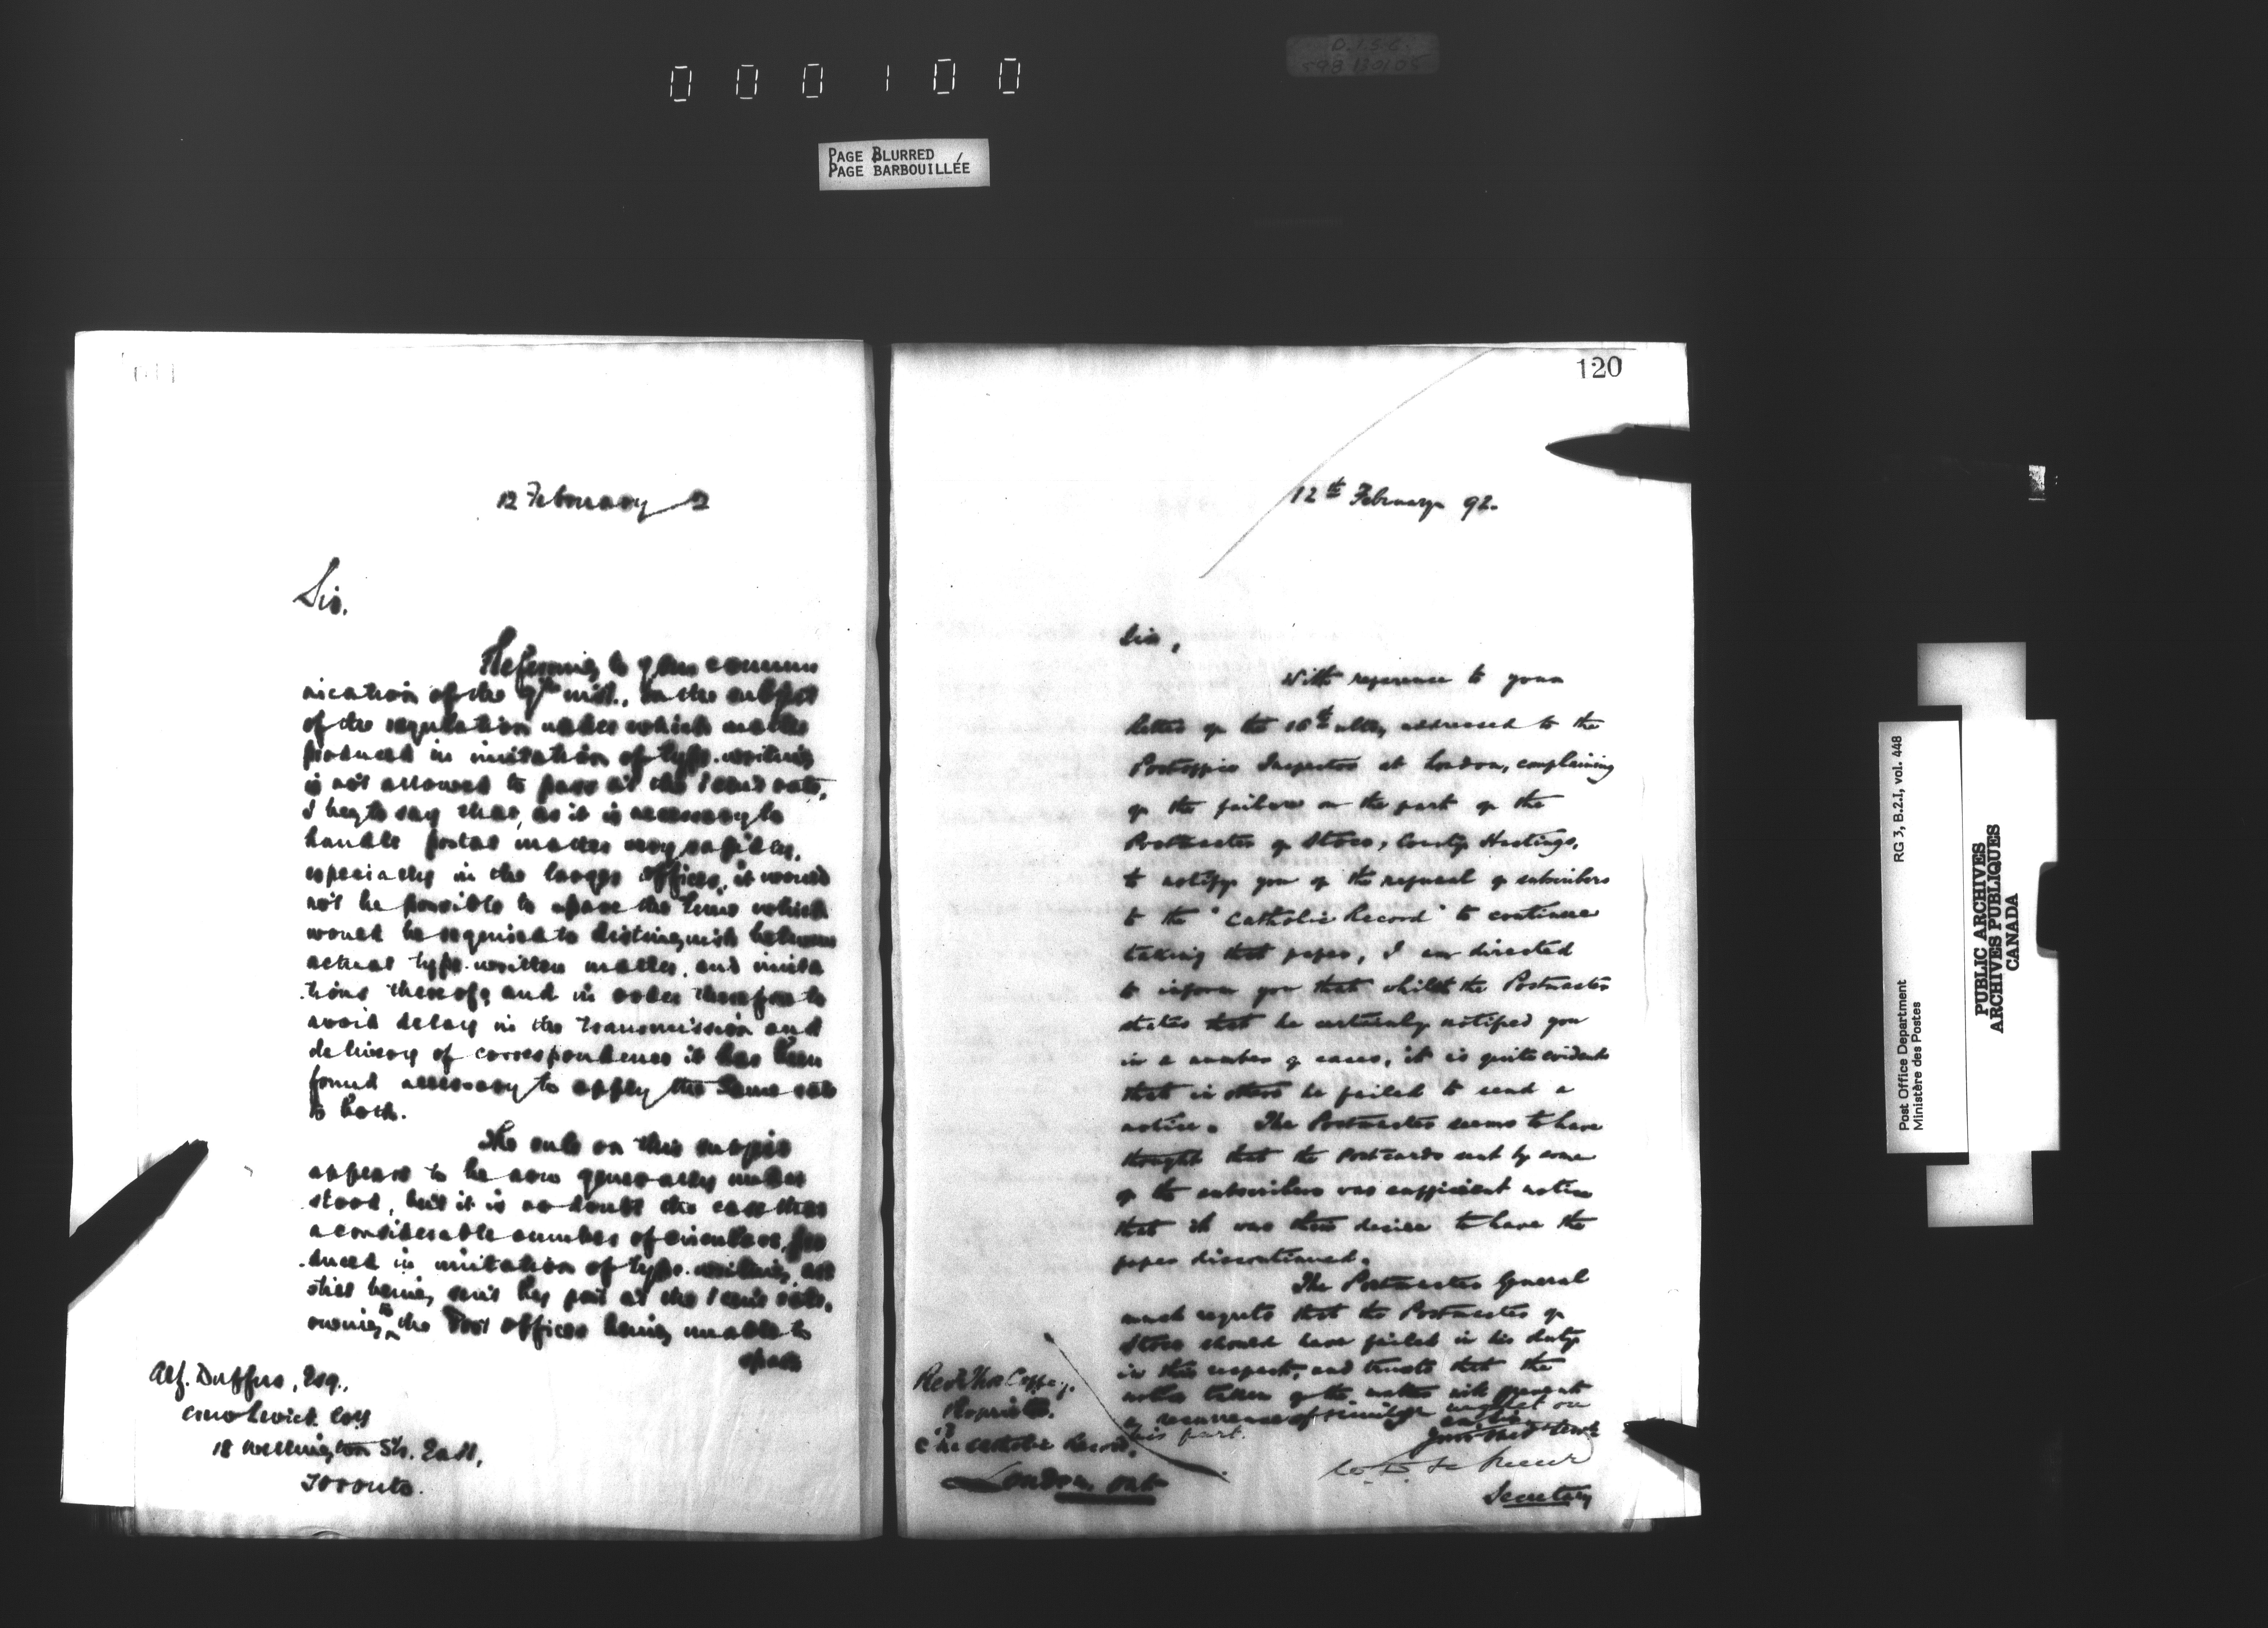 000100
D.I.S.C.
PAGE BLURRED
PAGE BARBOUILLÉE
12 February 2
Sir.
Referring to your commu
nication of the 9th inst., on the subject
of the regulation under which matter
produced in imitation of type-writing
is not allowed to pass at the 1 cent rate,
I beg to say that, as it is necessary to
handle postal matter very rapidly,
especially in the larger offices, it would
not be possible to spare the time which
would be required to distinguish between
actual type-written matter, and imita
tions thereof; and in order therefore to
avoid delay in the transmission and
delivery of correspondence it has been
found necessary to apply the same rate
to both.
The rule on this subject
appears to be now generally under
stood, but it is no doubt the case that
a considerable number of circulars, pro
duced in imitation of type-writing, are
still being sent by post at the 1 cent rate,
owing to the Post offices being unable to
spare
Alf. Duffus, Esq.,
18 Wellington St. East,
Toronto.
120
12th February 92.
Sir,
With reference to your
letter of the 16th ulto, addressed to the
Postoffice Inspector at London, complaining
of the failure on the part of the
Postmaster of Stoco, County Hastings,
to notify you of the refusal of subscribers
to the "Catholic Record" to continue
taking that paper, I am directed
to inform you that whilst the Postmaster
states that he certainly notified you
in a number of cases, it is quite evident
that in others he failed to send a
notice. The Postmaster seems to have
thought that the Postcards sent by some
of the subscribers was sufficient notice
that it was their desire to have the
paper discontinued.
The Postmaster General
much regrets that the Postmaster of
Stoco should have failed in his duty
in this respect, and trusts that the
notice taken of the matter will prevent
a recurrence of similar neglect on
his part.
Revd Thos Coffey,
Proprietor
The Catholic Record,
London, Ont
Secretary
RG 3, B.2.I, vol. 448
Post Office Department
Ministère des Postes
PUBLIC ARCHIVES
ARCHIVES PUBLIQUES
CANADA